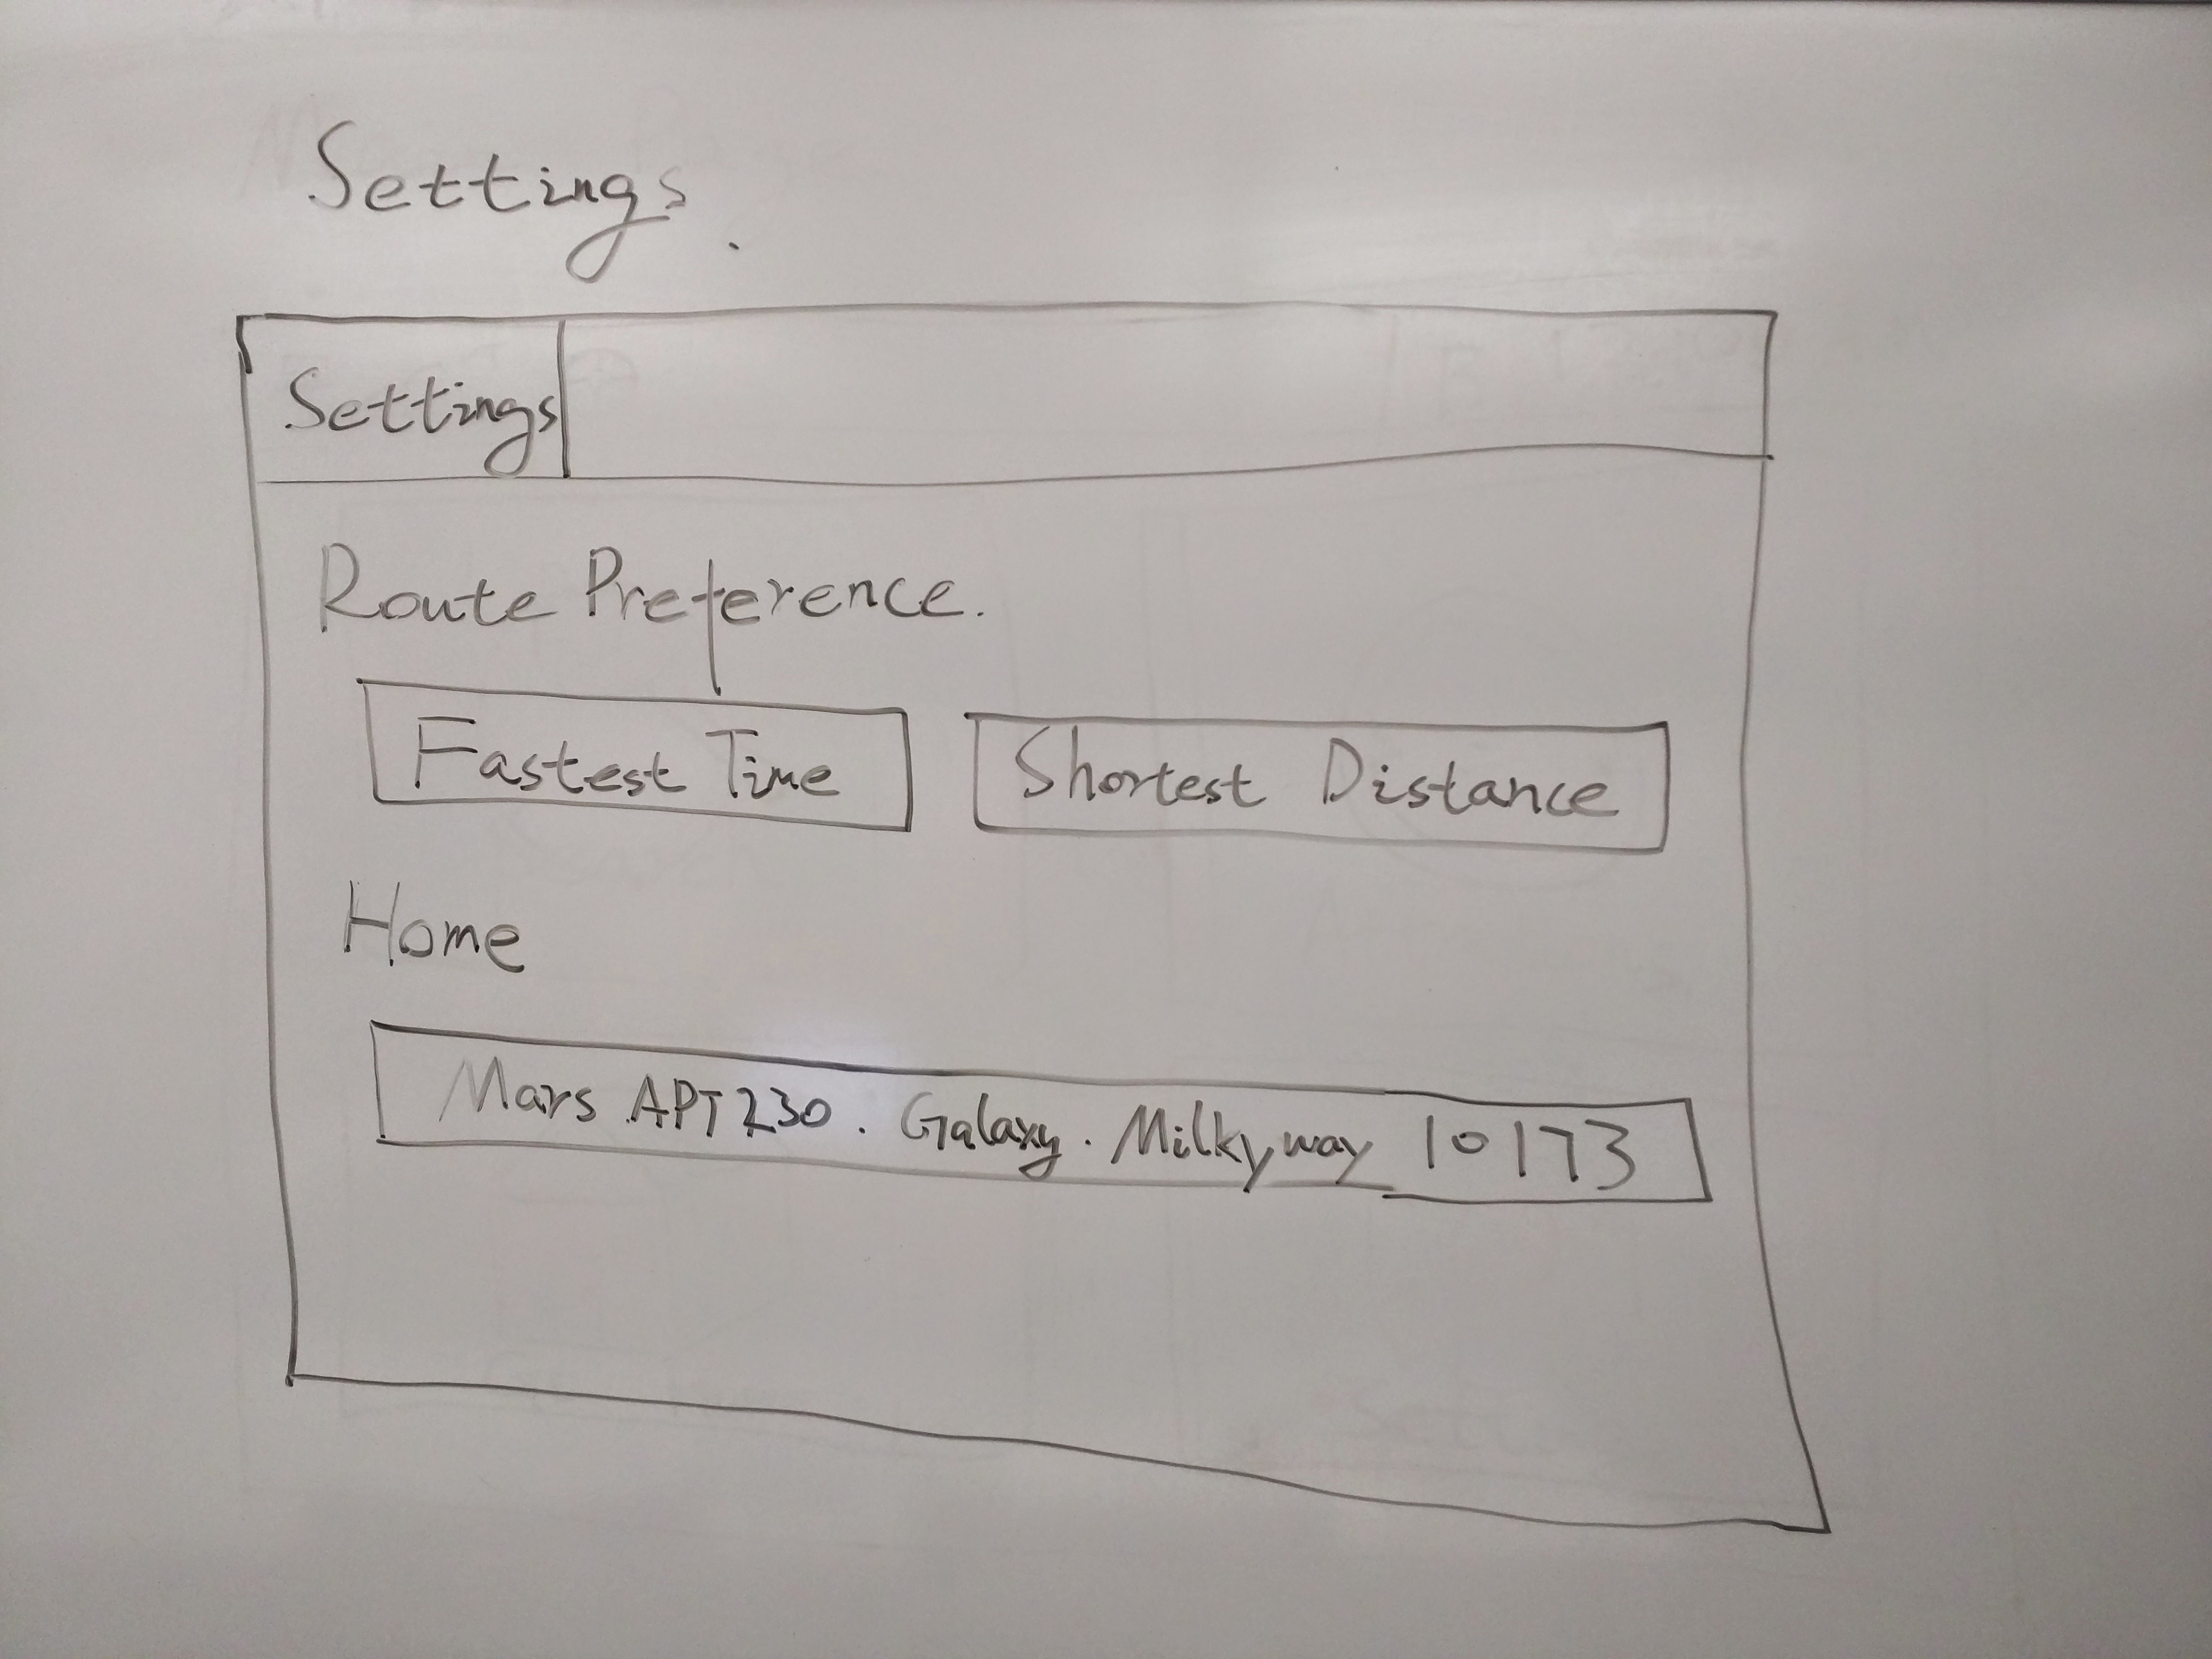 Settings.
Settings
Route Preference.
Fastest Time
Shortest Distance
Home
Mars APT 230. Galaxy. Milkyway 10173